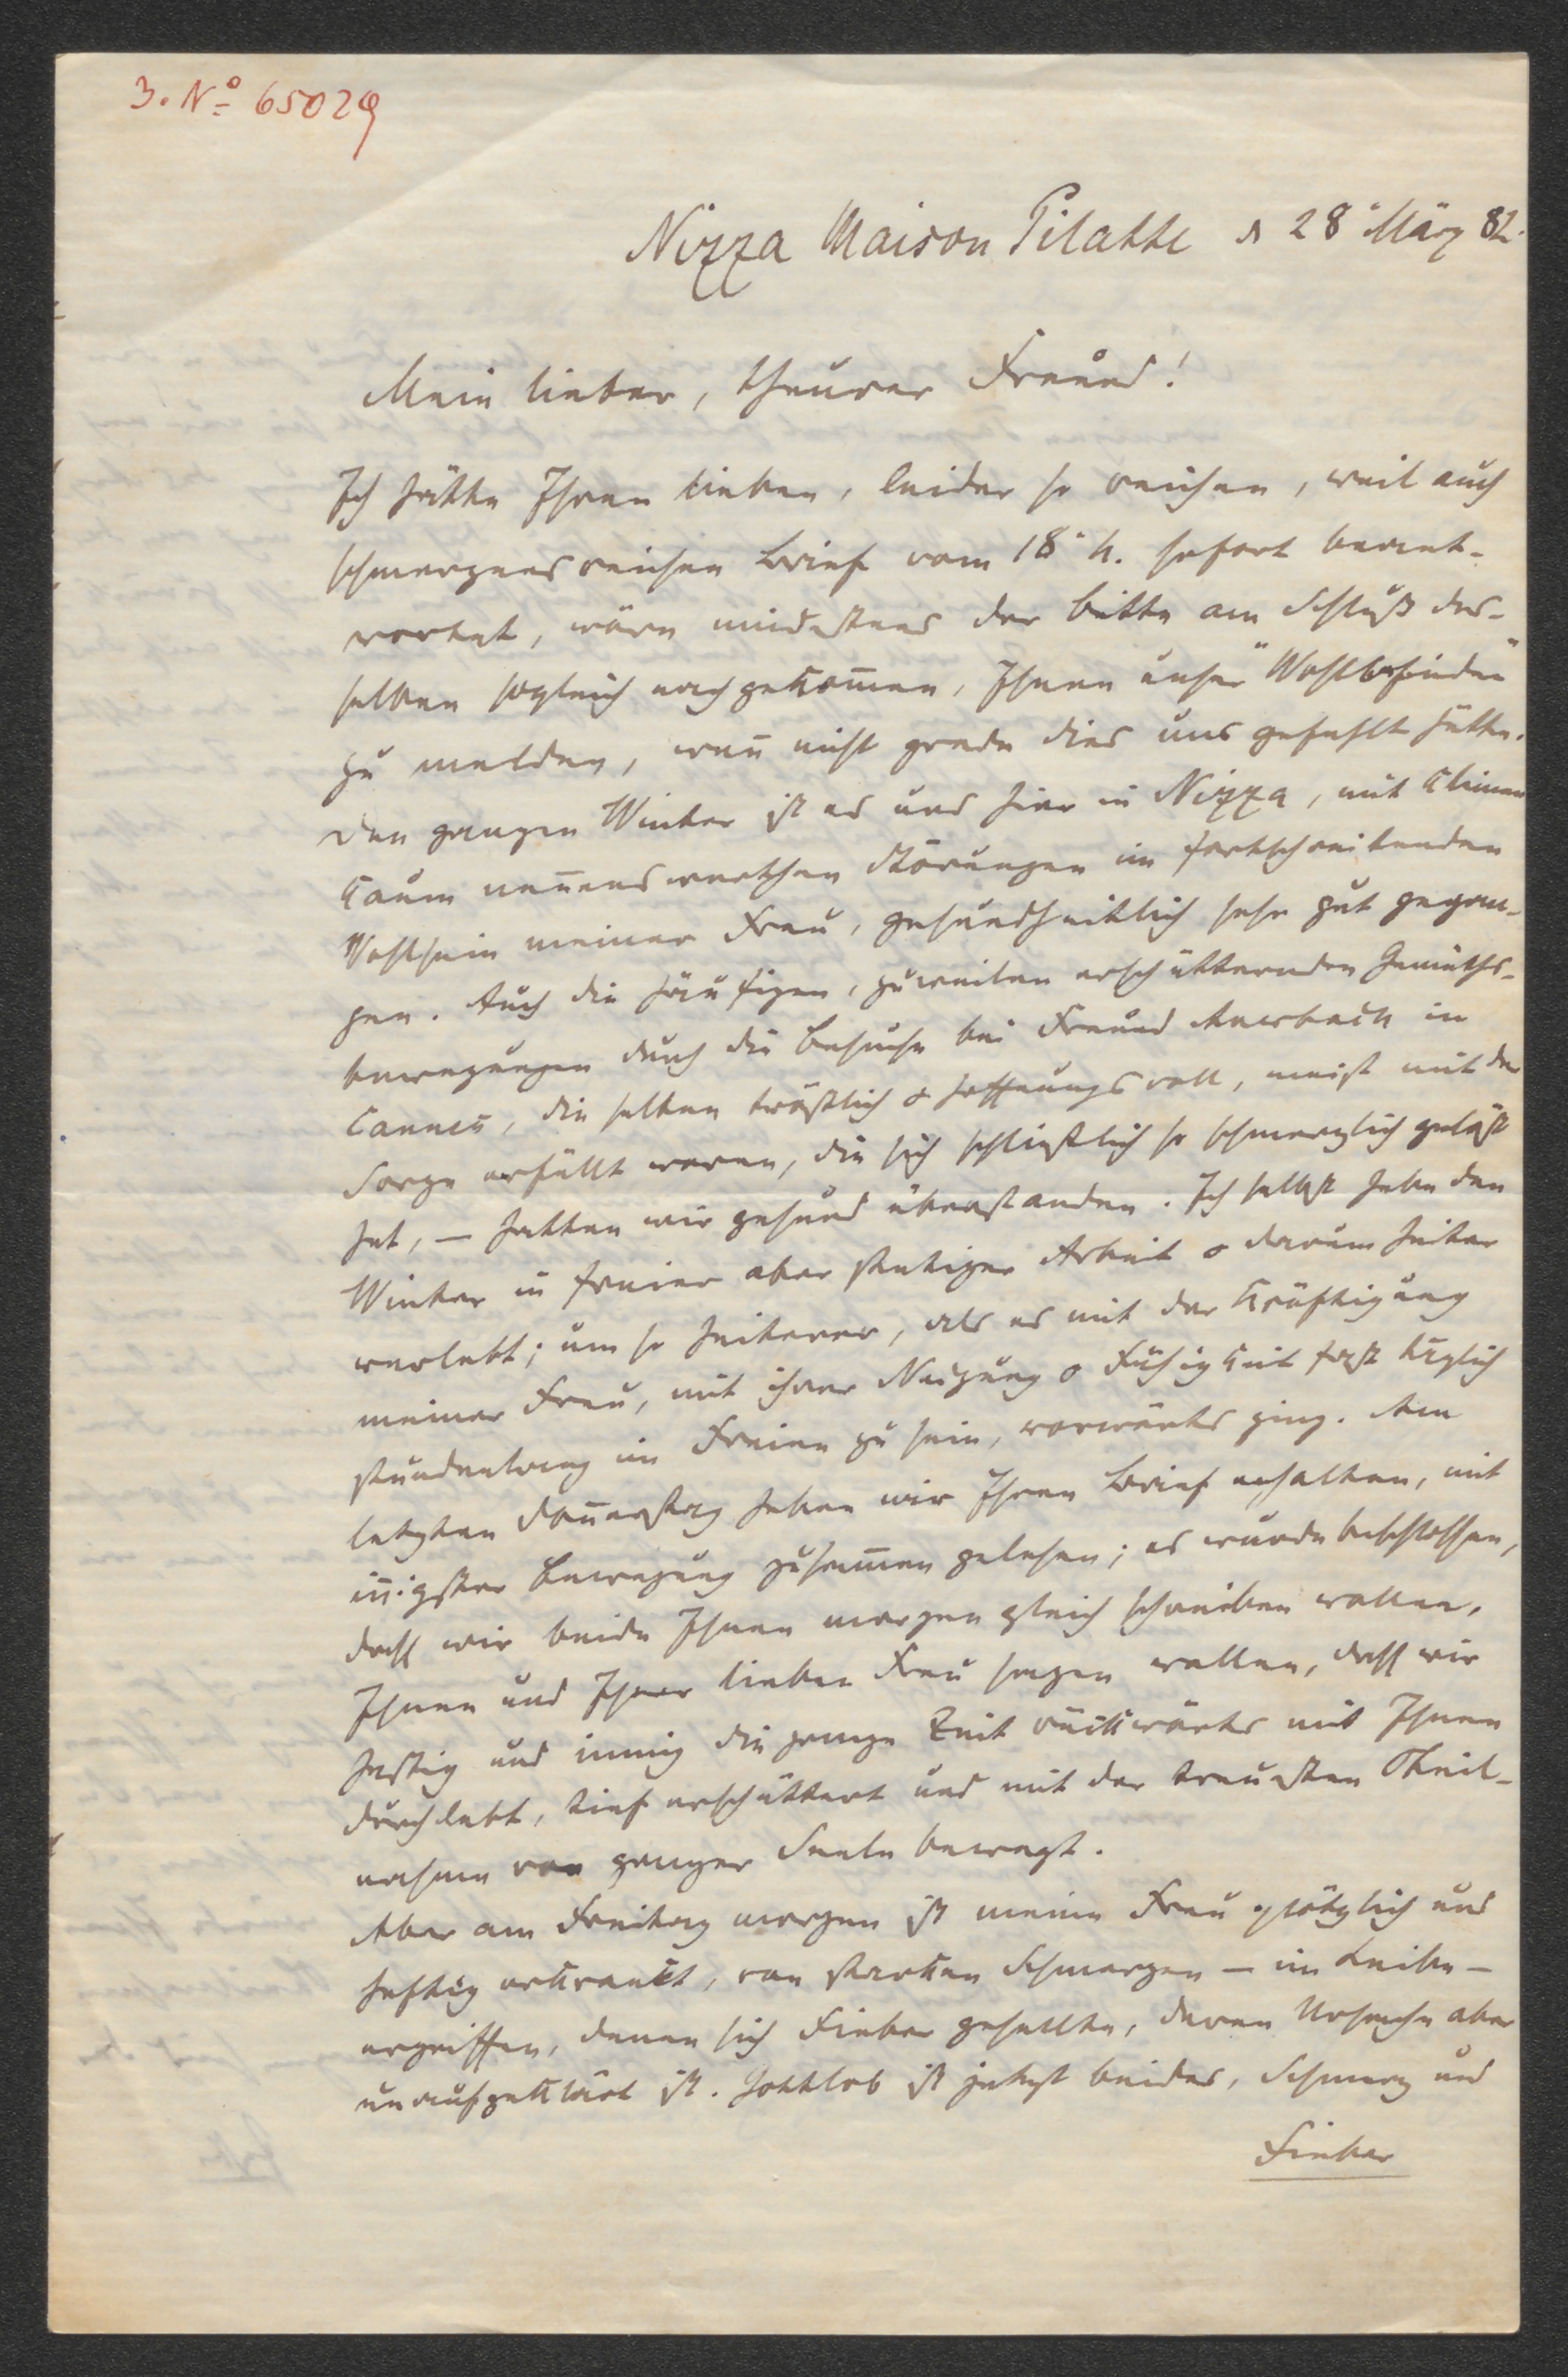 3. No 65029
Nizza Maison Pilatte d 28 März 82.
Mein lieber, theurer Freund!
Ich hätte Ihren lieben, leider so reichen, weil auch
schmerzensreichen Brief vom 18. h. sofort beant-
wortet, wäre mindestens der Bitte am Schluß des-
selben sogleich nachgekom̄en, Ihnen unser "Wohlbefinden"
zu melden, wen̄ nicht grade dies uns gefehlt hätte.
Den ganzen Winter ist es uns hier in Nizza, mit kleinen
kaum nen̄enswerthen Störungen im fortschreitenden
Wohlsein meiner Frau, gesundheitlich sehr gut gegan-
gen. Auch die häufigen, zuweilen erschütternden Gemüths-
bewegungen durch die Besuche bei Freund Auerbach in
Cannes, die selten tröstlich & hoffnungsvoll, meist mit der
Sorge erfüllt waren, die sich schließlich so schmerzlich gelöst
hat, – hatten wir gesund überstanden. Ich selbst habe den
Winter in freier aber stetiger Arbeit & darum heiter
verlebt; um so heiterer, als es mit der Kräftigung
meiner Frau, mit ihrer Neigung & Fähigkeit fast täglich
stundenlang im Freien zu sein, vorwärts ging. Am
letzten Don̄erstag haben wir Ihren Brief erhalten, mit
in̄igster Bewegung zusam̄en gelesen; es wurde beschlossen,
dass wir beide Ihnen morgen gleich schreiben wollen,
Ihnen und Ihrer lieben Frau sagen wollen, dass wir
hastig und innig die ganze Zeit rückwärts mit Ihnen
durchlebt, tief erschüttert und mit der treusten Theil-
nahme von ganzer Seele bewegt.
Aber am Freitag morgen ist meine Frau plötzlich und
heftig erkrankt, von starken Schmerzen – im Leibe –
ergriffen, denen sich Fieber gesellte, deren Ursache aber
unaufgeklärt ist. Gottlob ist jetzt beides, Schmerz und
Fieber